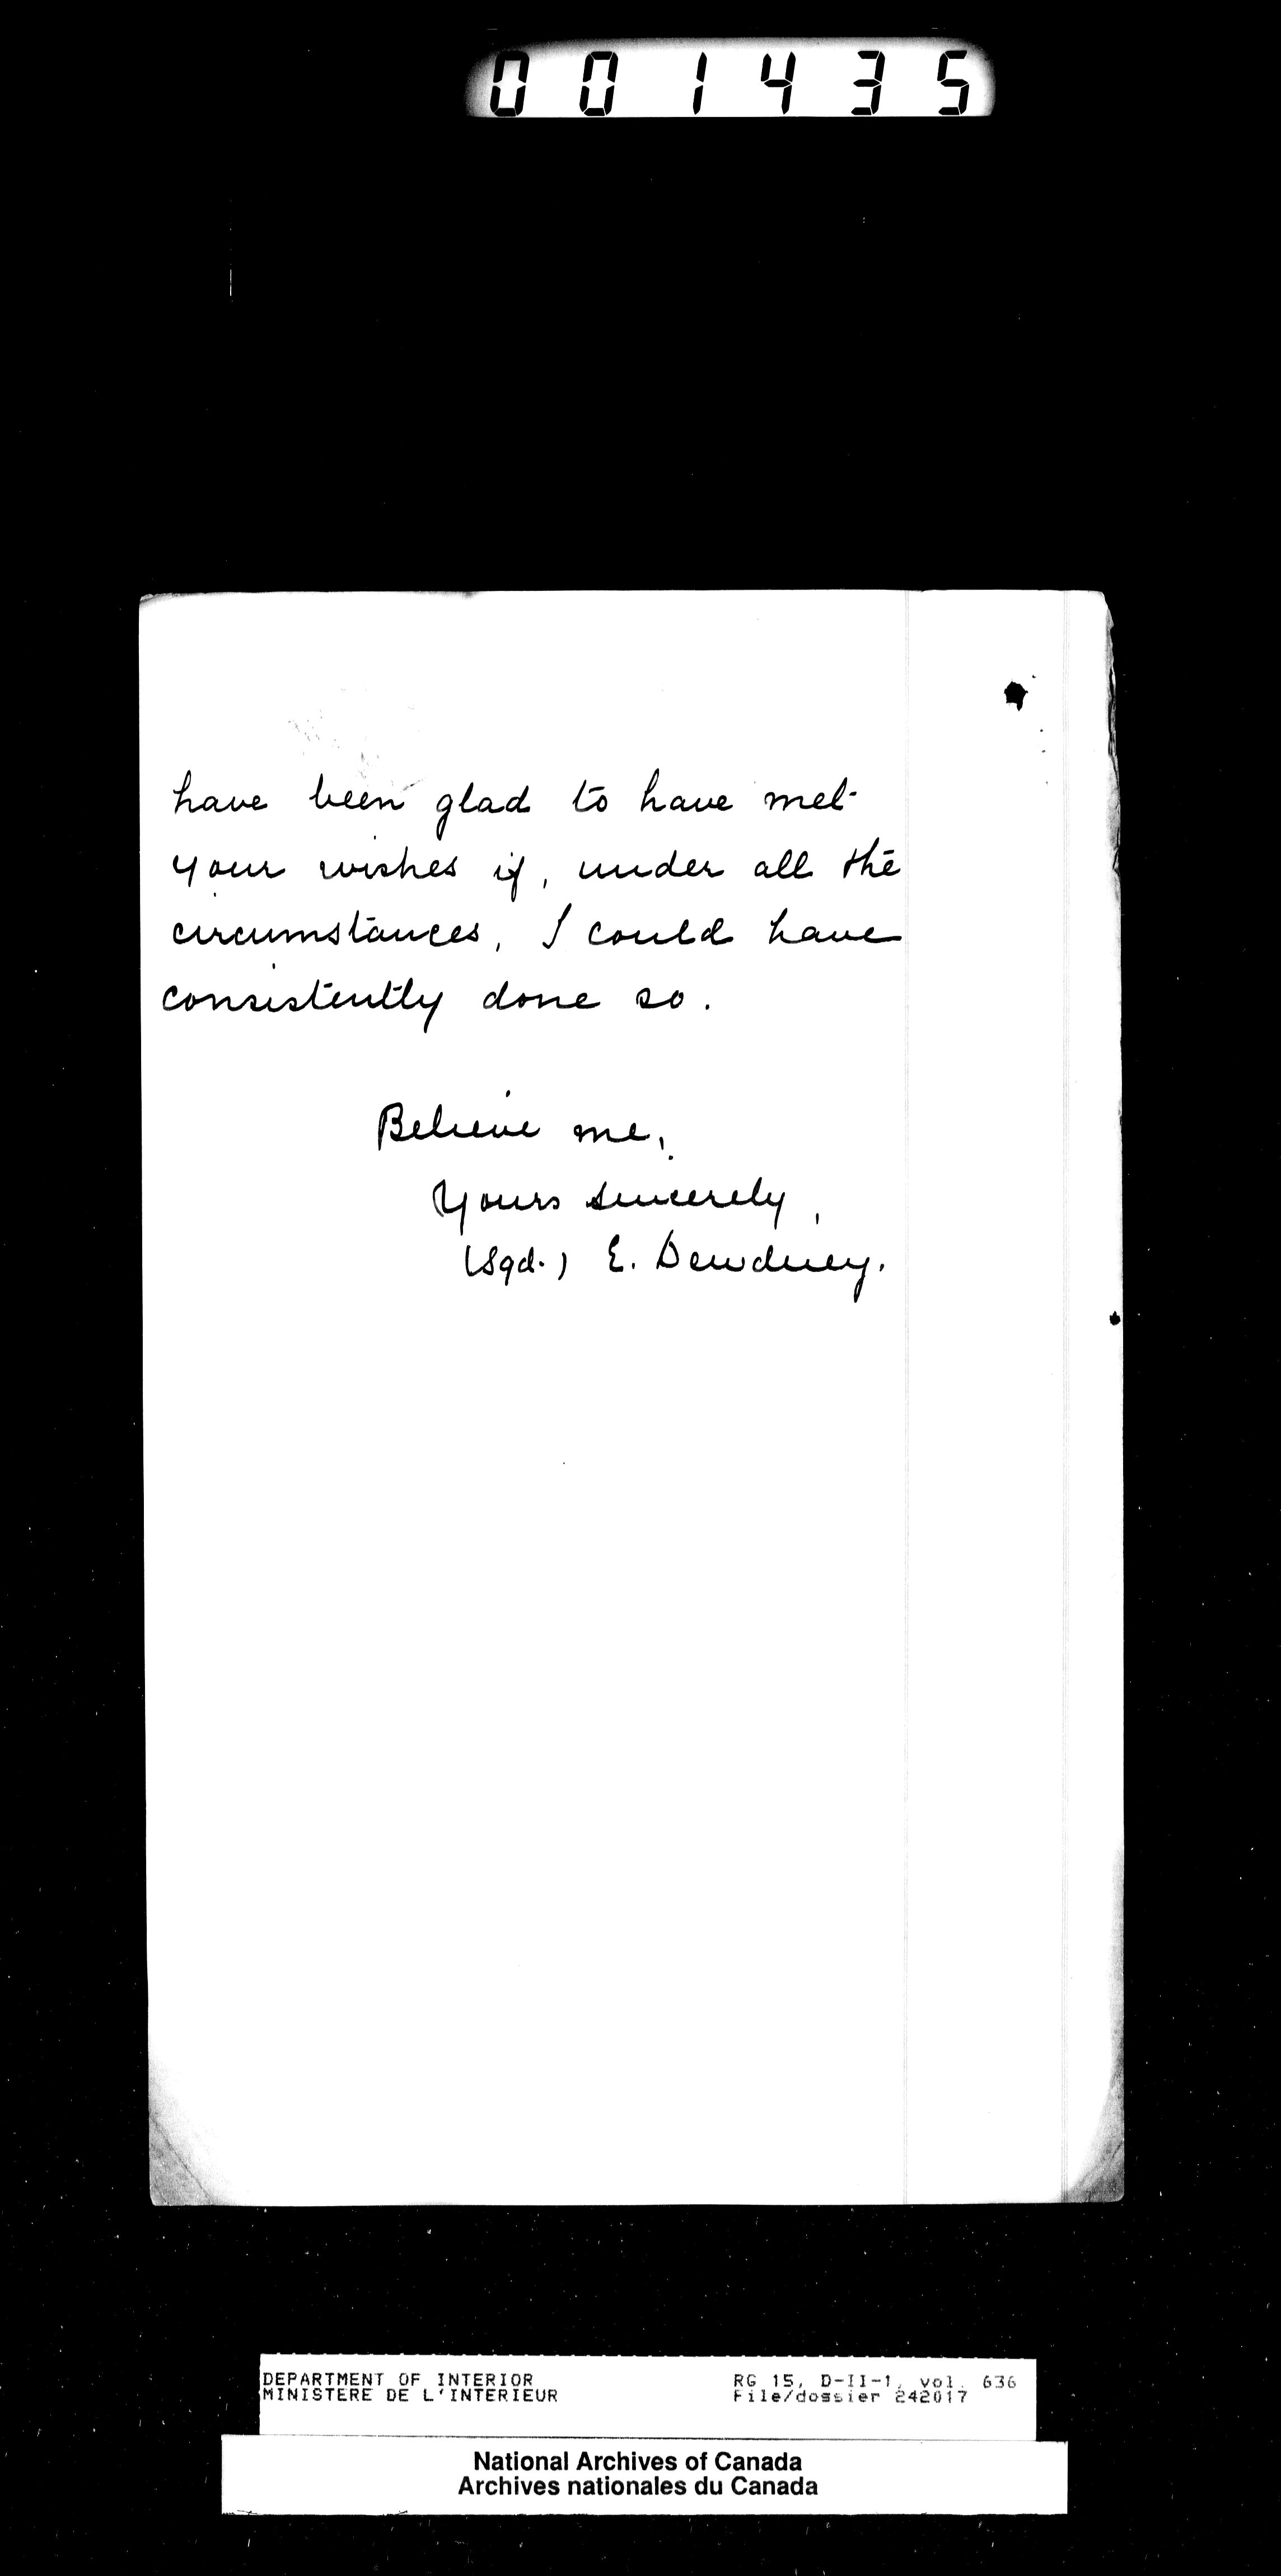 001435
have been glad to have met
your wishes if, under all the
circumstances, I could have
consistently done so.
Believe me,
Yours sincerely,
(Sgd.) E. Dewdney.
DEPARTMENT OF INTERIOR RG 15, D-II-1, vol. 636
MINISTERE DE L'INTERIEUR File/dossier 242017
National Archives of Canada
Archives nationales du Canada